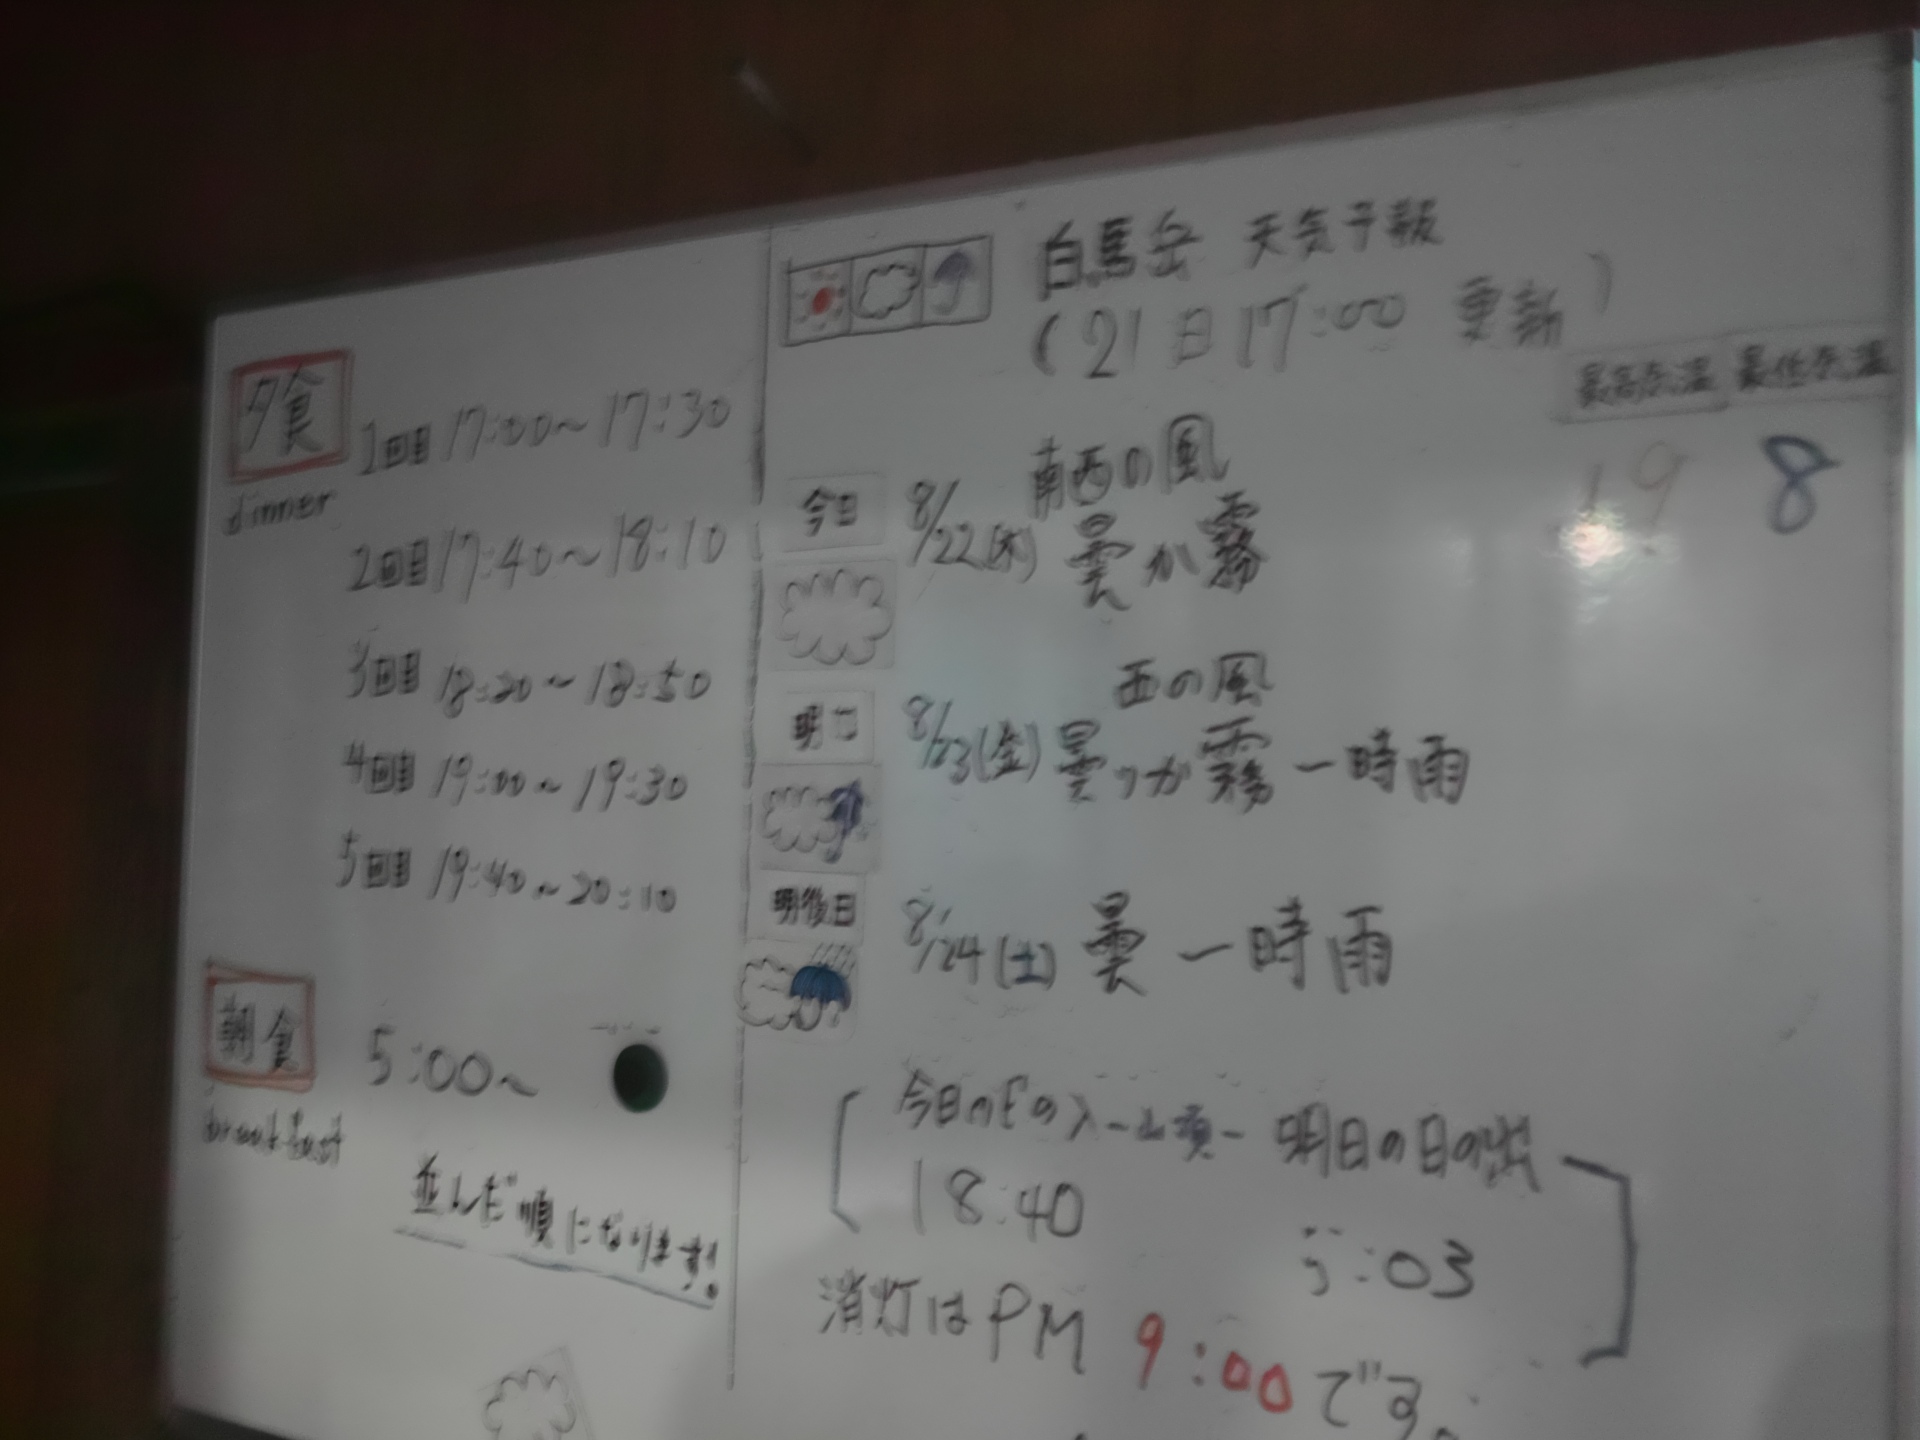 夕食
dinner
1回目 17:00～17:30
2回目 17:40～18:10
3回目 18:20～18:50
4回目 19:00～19:30
5回目 19:40～20:10
朝食
breakfast
5:00～
並んだ順になります!
白馬岳 天気予報
(21日17:00 更新)
最高気温 最低気温
19 8
今日 8/22(木) 南西の風
曇か霧
明日 8/23(金) 西の風
曇か霧 一時雨
明後日 8/24(土) 曇 一時雨
今日の日の入 ー山頂ー 明日の日の出
18:40 5:03
消灯はPM 9:00です。